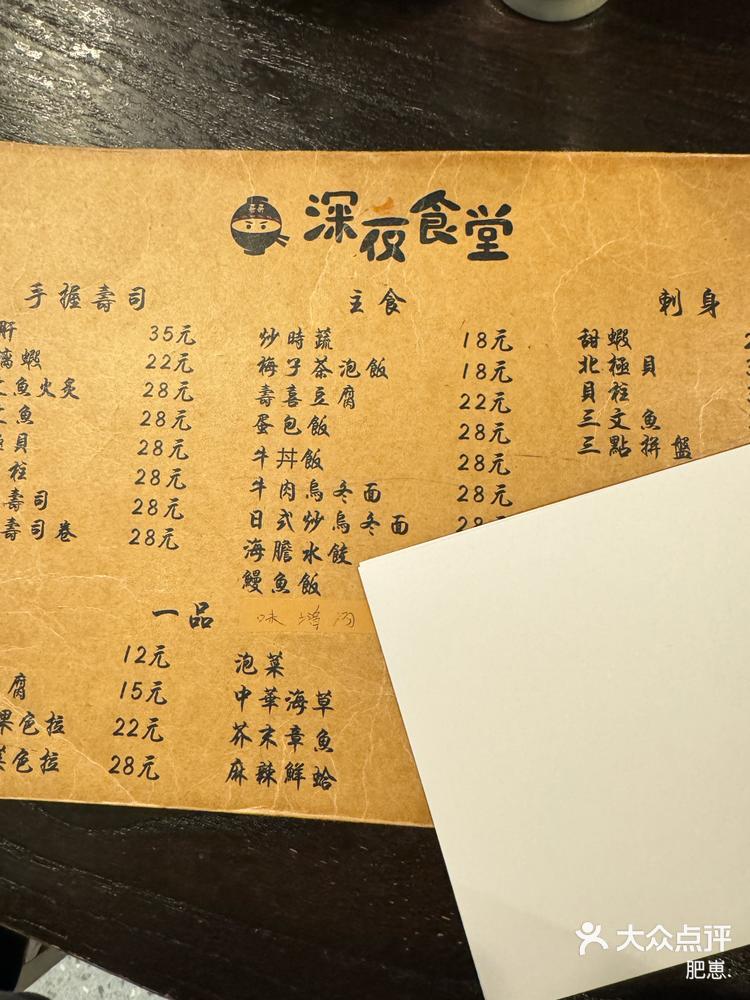 深夜食堂
手握壽司
肝 35元
蝦 22元
魚火炙 28元
魚 28元
貝 28元
柱 28元
壽司 28元
壽司卷 28元
主食
炒時蔬 18元
梅子茶泡飯 18元
壽喜豆腐 22元
蛋包飯 28元
牛丼飯 28元
牛肉烏冬面 28元
日式炒烏冬面 28
海膽水餃
鰻魚飯
味增汤
刺身
甜蝦 2
北極貝
貝柱
三文魚
三點拼盤
一品
12元
腐 15元
果色拉 22元
菜色拉 28元
泡菜
中華海草
芥末章魚
麻辣鮮蛤
大众点评
肥崽.